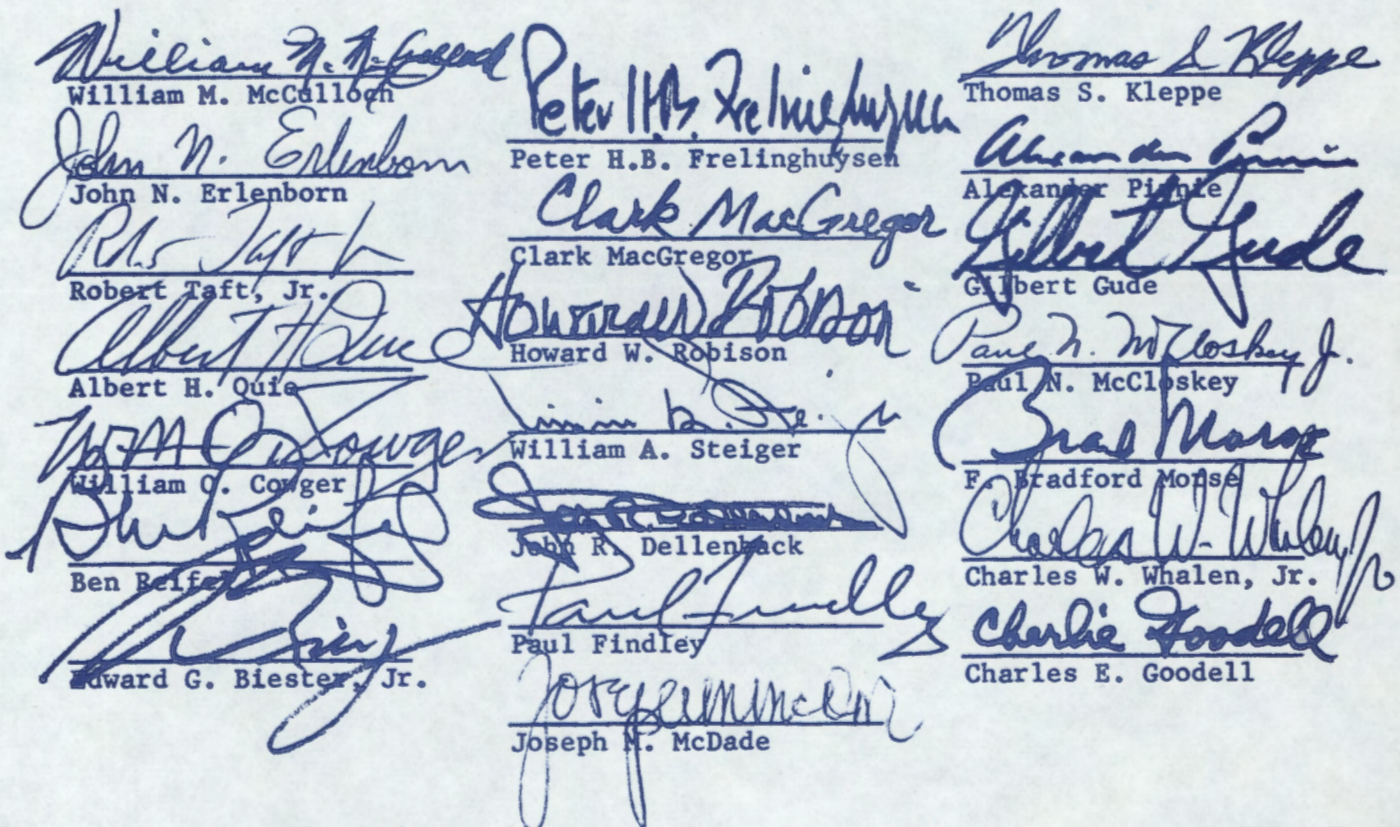 William M. McCulloch
William M. McCulloch
John N. Erlenborn
John N. Erlenborn
Robt Taft Jr
Robert Taft, Jr.
Albert H Quie
Albert H. Quie
Wm O Cowger
William O. Cowger
Ben Reifel
Ben Reifel
Edward G. Biester, Jr.
Peter H.B. Frelinghuysen
Peter H.B. Frelinghuysen
Clark MacGregor
Clark MacGregor
Howard W Robison
Howard W. Robison
William A. Steiger
John R. Dellenback
Paul Findley
Paul Findley
Joseph M. McDade
Thomas S Kleppe
Thomas S. Kleppe
Alexander Pirnie
Alexander Pirnie
Gilbert Gude
Gilbert Gude
Paul N. McCloskey J.
Paul N. McCloskey
Brad Morse
F. Bradford Morse
Charles W. Whalen Jr
Charles W. Whalen, Jr.
Charlie Goodell
Charles E. Goodell